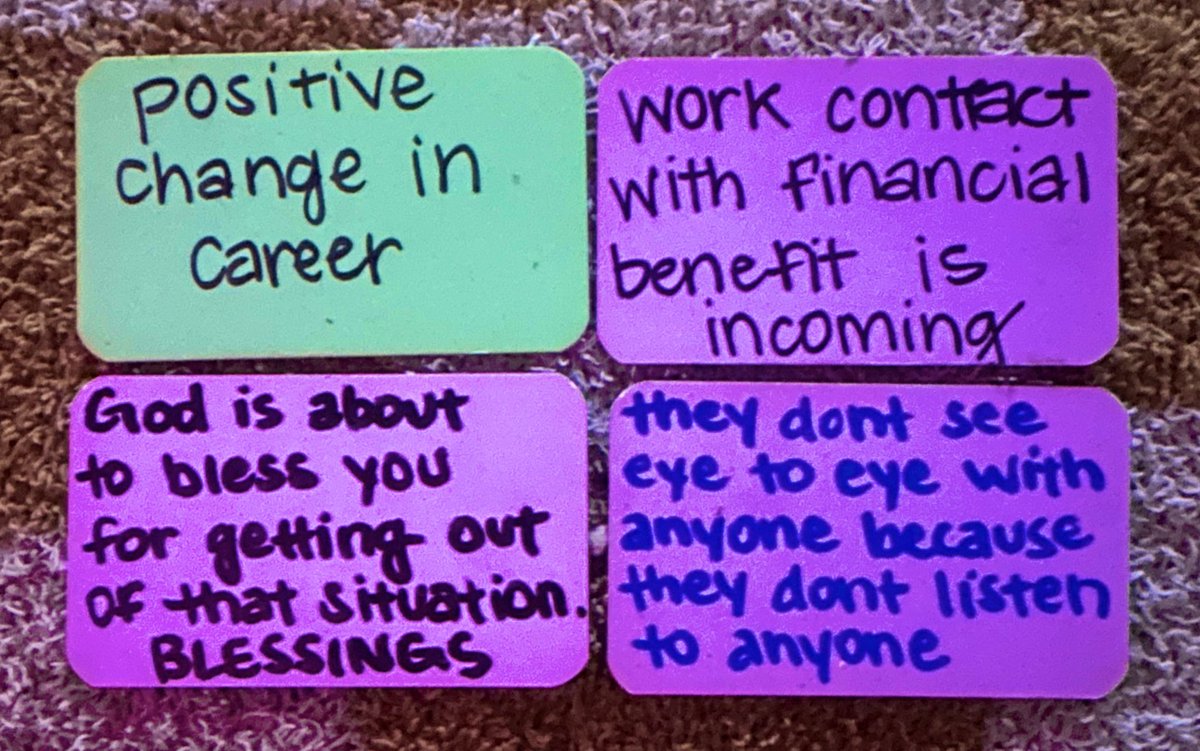 positive
change in
career
work contract
with financial
benefit is
incoming
God is about
to bless you
for getting out
of that situation.
BLESSINGS
they dont see
eye to eye with
anyone because
they dont listen
to anyone